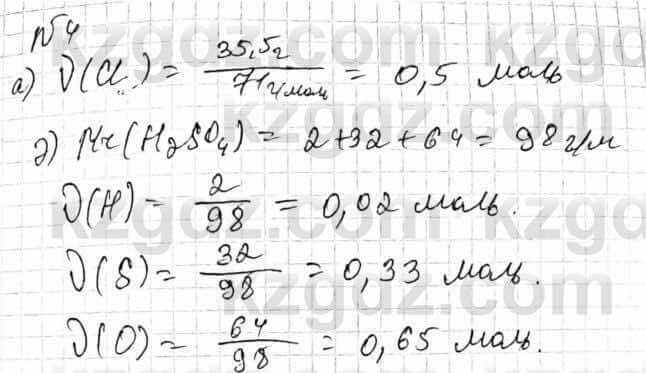 №4
а) ν(Cl₂) = 35,5г / 71г/моль = 0,5 моль
д) Mr(H₂SO₄) = 2+32+64 = 98 г/м
ν(H) = 2/98 = 0,02 моль.
ν(S) = 32/98 = 0,33 моль.
ν(O) = 64/98 = 0,65 моль.